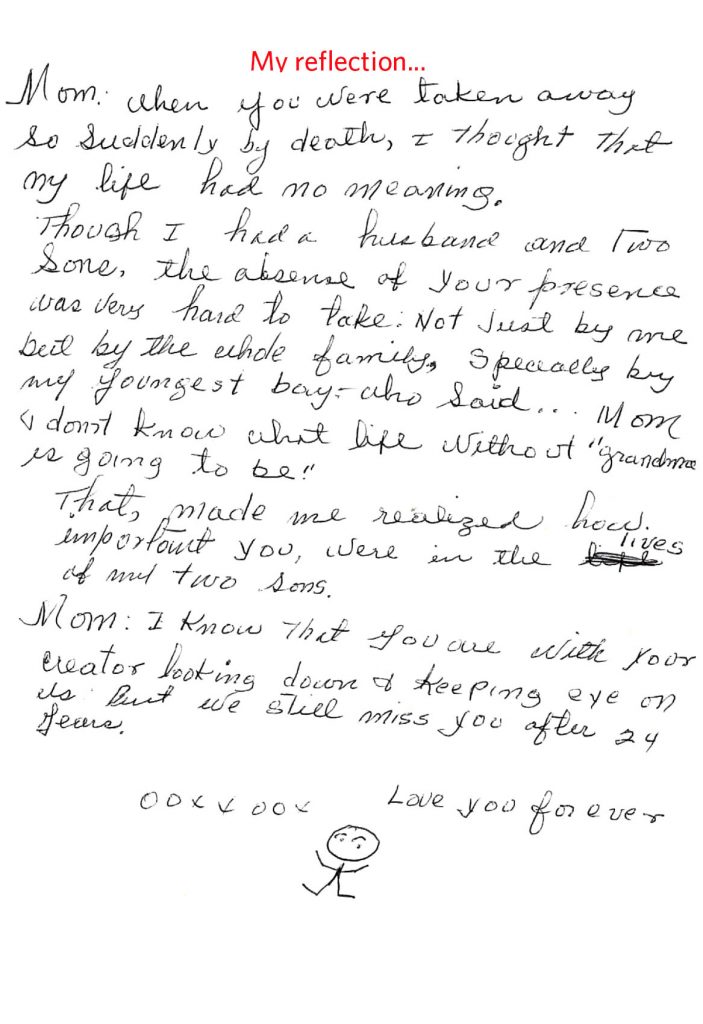 My reflection...
Mom: when you were taken away
so suddenly by death, I thought that
my life had no meaning.
Though I had a husband and Two
Sons, the absense of your presence
was very hard to take: Not Just by me
but by the whole family, Specially by
my youngest boy- who said... Mom
I don't know what life without "grandma
is going to be"
That, made me realized how.
important you, were in the lives
of my two sons.
Mom: I know That you are with your
creator looking down & keeping eye on
us. But we still miss you after 24
years.
OOXXOOX Love you forever